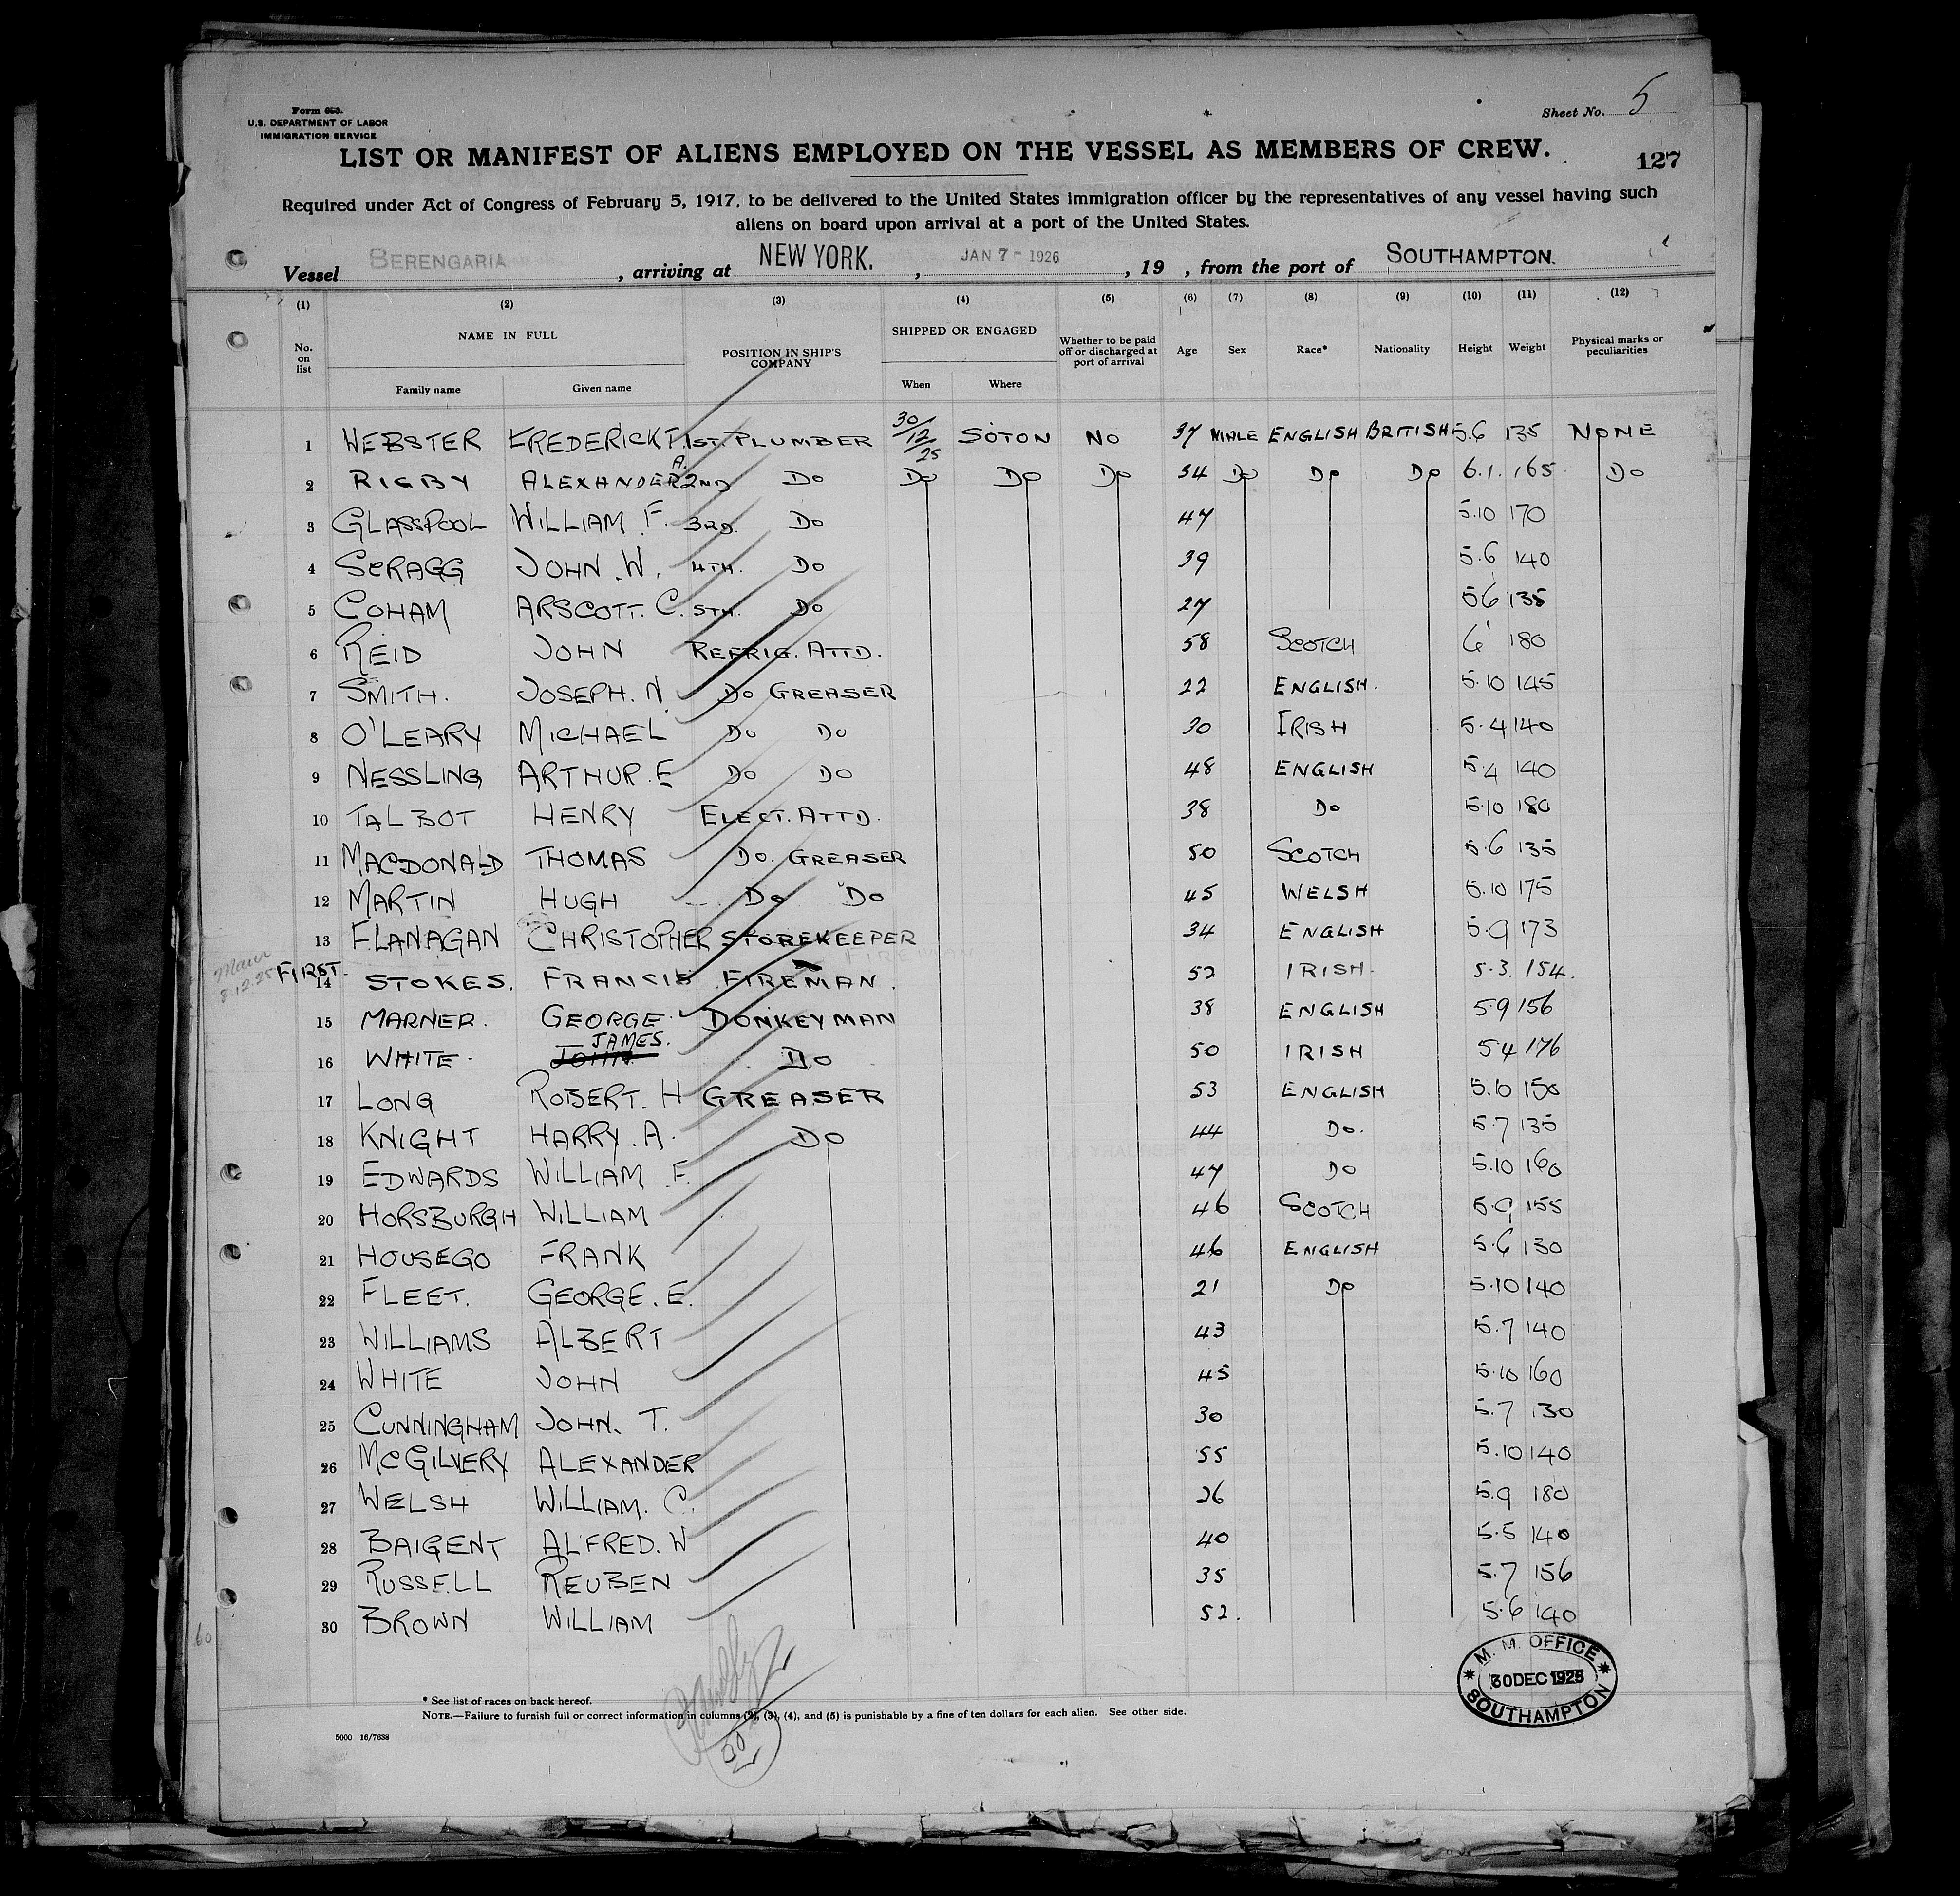 Form 680.
U.S. DEPARTMENT OF LABOR
IMMIGRATION SERVICE
Sheet No. 5
LIST OR MANIFEST OF ALIENS EMPLOYED ON THE VESSEL AS MEMBERS OF CREW.
127
Required under Act of Congress of February 5, 1917, to be delivered to the United States immigration officer by the representatives of any vessel having such
aliens on board upon arrival at a port of the United States.
Vessel BERENGARIA, arriving at NEW YORK., JAN 7 - 1926, 19 , from the port of SOUTHAMPTON.
(1) (2) (3) (4) (5) (6) (7) (8) (9) (10) (11) (12)
No. on list NAME IN FULL POSITION IN SHIP'S COMPANY SHIPPED OR ENGAGED Whether to be paid off or discharged at port of arrival Age Sex Race* Nationality Height Weight Physical marks or peculiarities
Family name Given name When Where
1 WEBSTER FREDERICK F. 1ST. PLUMBER 30/12/25 SOTON NO 37 MALE ENGLISH BRITISH 5.6 135 NONE
2 RIGBY ALEXANDER A. 2ND DO DO DO DO 34 DO DO DO 6.1. 165 DO
3 GLASSPOOL WILLIAM F. 3RD. DO 47 5.10 170
4 SCRAGG JOHN W. 4TH. DO 39 5.6 140
5 COHAM ARSCOTT. C. 5TH. DO 27 5 6 135
6 REID JOHN REFRIG. ATTD. 58 SCOTCH 6' 180
7 SMITH. JOSEPH. N. DO GREASER 22 ENGLISH. 5.10 145
8 O'LEARY MICHAEL DO DO 30 IRISH 5.4 140
9 NESSLING ARTHUR. E DO DO 48 ENGLISH 5.4 140
10 TALBOT HENRY ELECT. ATTD. 38 DO 5.10 180
11 MACDONALD THOMAS DO. GREASER 50 SCOTCH 5.6 135
12 MARTIN HUGH DO DO 45 WELSH 5.10 175
13 FLANAGAN CHRISTOPHER STOREKEEPER 34 ENGLISH 5.9 173
8.12.25 FIRST.
14 STOKES. FRANCIS FIREMAN. 52 IRISH. 5.3. 154.
15 MARNER. GEORGE. DONKEYMAN 38 ENGLISH 5.9 156
16 WHITE. JOHN JAMES. DO 50 IRISH 5.4 176
17 LONG ROBERT. H GREASER 53 ENGLISH 5.10 150
18 KNIGHT HARRY. A. DO 44 DO. 5.7 135
19 EDWARDS WILLIAM F. 47 DO 5.10 160
20 HORSBURGH WILLIAM 46 SCOTCH 5.9 155
21 HOUSEGO FRANK 46 ENGLISH 5.6 130
22 FLEET. GEORGE. E. 21 DO 5.10 140
23 WILLIAMS ALBERT 43 5.7 140
24 WHITE JOHN 45 5.10 160
25 CUNNINGHAM JOHN. T. 30 5.7 130
26 MCGILVERY ALEXANDER 55 5.10 140
27 WELSH WILLIAM. C. 26 5.9 180
28 BAIGENT ALFRED. W 40 5.5 140
29 RUSSELL REUBEN 35 5.7 156
30 BROWN WILLIAM 52. 5.6 140
60
M. M. OFFICE
30 DEC 1925
SOUTHAMPTON
* See list of races on back hereof.
NOTE.—Failure to furnish full or correct information in columns (2), (3), (4), and (5) is punishable by a fine of ten dollars for each alien. See other side.
30
5000 16/7638